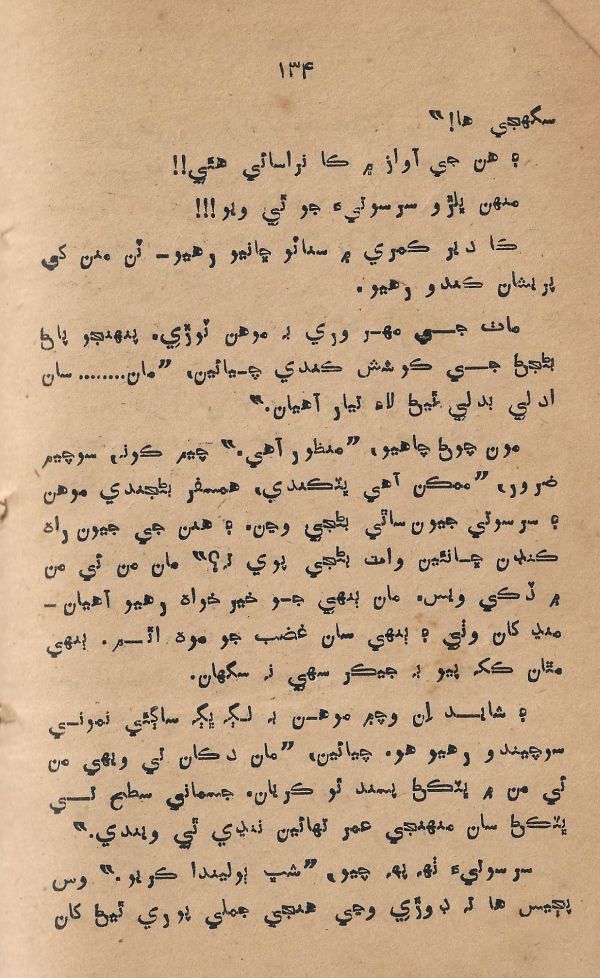 ۱۳۴
سگهجي ها!”
۽ هن جي آواز ۾ ڪا نراسائي هئي!!
منهن پيلڙو سرسوتيءَ جو ٿي ويو!!!
ڪا دير ڪمري ۾ سناٽو ڇانيو رهيو۔ ٽن منن کي
پريشان ڪندو رهيو.
مات جي مهر وري بہ موهن ٽوڙي. پنهنجو پاڻ
بڻجڻ جي ڪوشش ڪندي چيائين، ”مان........سان
ادلي بدلي ٿيڻ لاءِ تيار آهيان.”
مون چوڻ چاهيو، ”منظور آهي.” چيم ڪونہ، سوچيم
ضرور، ”ممڪن آهي ڀٽڪندي، همسفر بڻجندي موهن
۽ سرسوتي جيون ساٿي بڻجي وڃن. ۽ هنن جي جيون راه
ڪنهن چانئين واٽ بڻجي پوي تہ؟” مان من ئي من
۾ ڏڪي ويس. مان ٻنهي جو خير خواه رهيو آهيان۔
منڍ کان وٺي ۽ ٻنهي سان غضب جو موه اٿم. ٻنهي
مٿان ڪک پيو بہ جيڪر سهي نہ سگهان.
۽ شايد اِن وچ ۾ موهن بہ لڳ ڀڳ ساڳئي نموني
سوچيندو رهيو هو. چيائين، ”مان دڪان تي ويهي من
ئي من ۾ ڀٽڪڻ پسند ٿو ڪريان. جسماني سطح تي
ڀٽڪڻ سان منهنجي عمر ٿهائين ننڍي ٿي ويندي.”
سرسوتيءَ ٺهہ پهہ چيو، ”شپ ٻوليندا ڪريو.” وس
پڄيس ها تہ ڊوڙي وڃي هنجي جملي پوري ٿيڻ کان